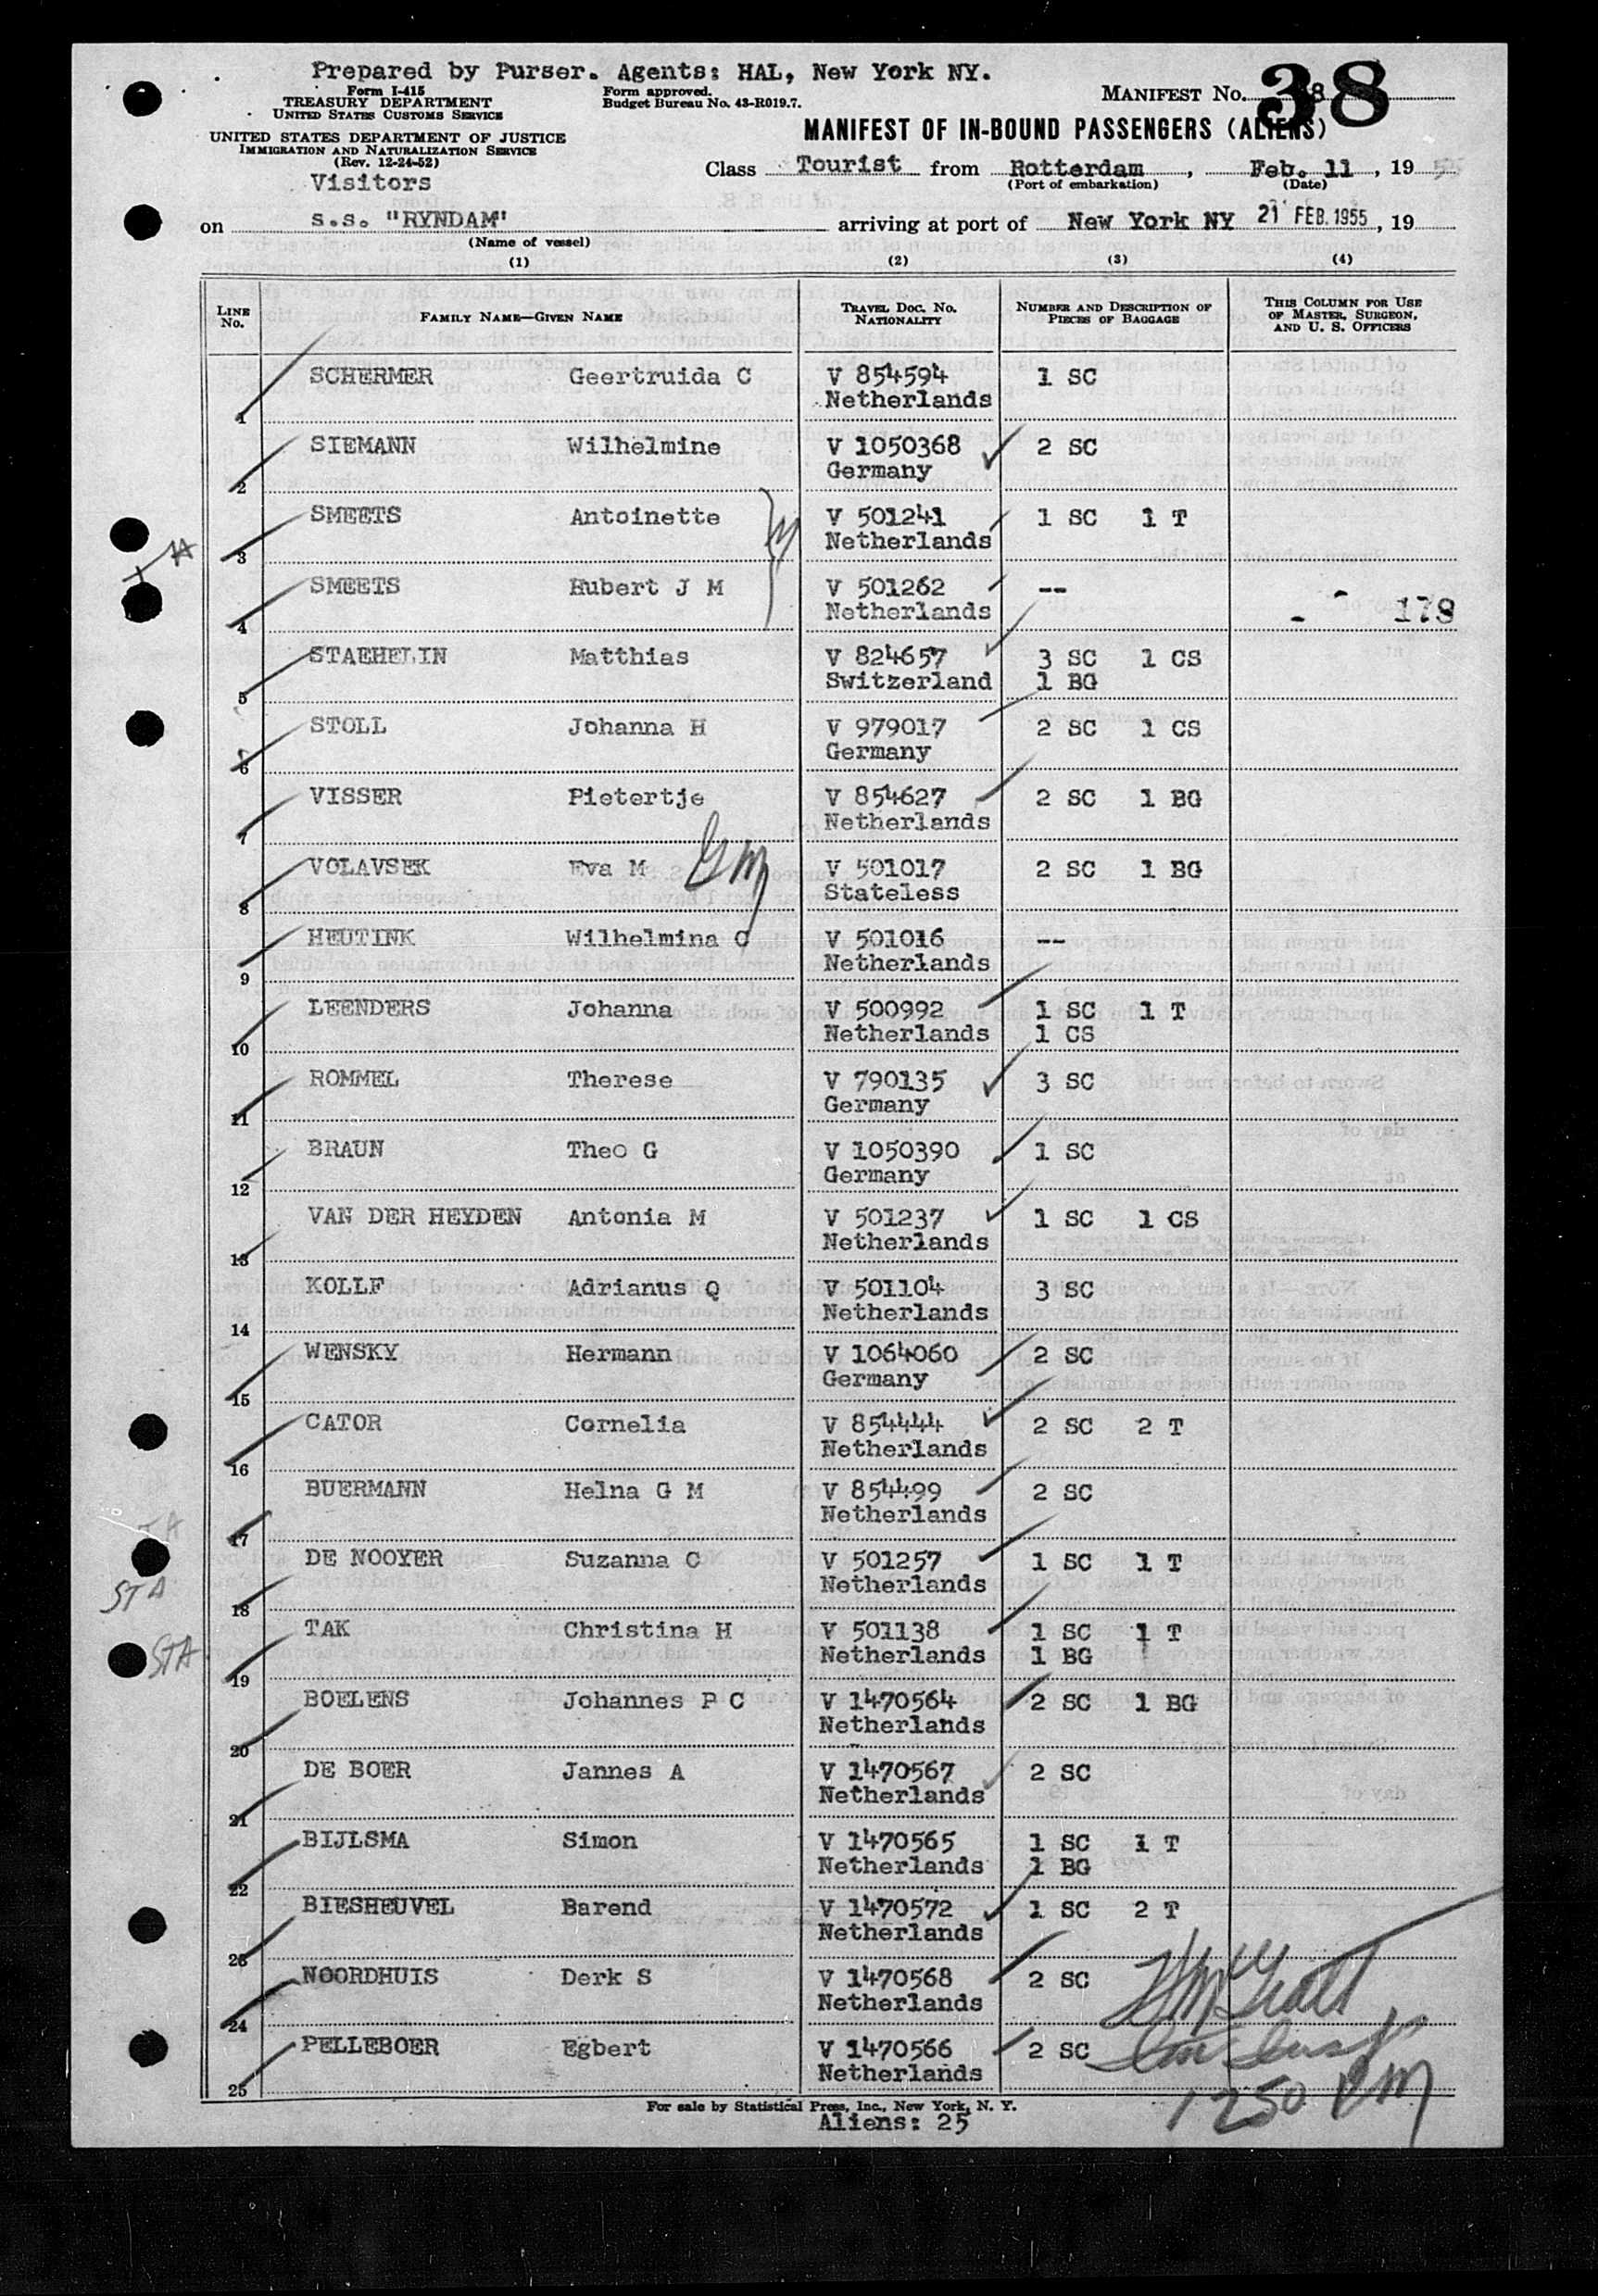 Prepared by Purser. Agents: HAL, New York NY.
Form I-415
TREASURY DEPARTMENT
UNITED STATES CUSTOMS SERVICE
Form approved.
Budget Bureau No. 43-R019.7.
MANIFEST No. 38
UNITED STATES DEPARTMENT OF JUSTICE
IMMIGRATION AND NATURALIZATION SERVICE
(Rev. 12-24-52)
MANIFEST OF IN-BOUND PASSENGERS (ALIENS)
Visitors
Class Tourist from Rotterdam, Feb. 11, 19 55
(Port of embarkation) (Date)
on s.s. "RYNDAM" arriving at port of New York NY 21 FEB. 1955, 19
(Name of vessel)
(1) (2) (3) (4)
LINE No. FAMILY NAME—GIVEN NAME TRAVEL DOC. NO. NATIONALITY NUMBER AND DESCRIPTION OF PIECES OF BAGGAGE THIS COLUMN FOR USE OF MASTER, SURGEON, AND U. S. OFFICERS
SCHERMER Geertruida C V 854594 1 SC
1 Netherlands
SIEMANN Wilhelmine V 1050368 2 SC
2 Germany
SMEETS Antoinette V 501241 1 SC 1 T
3 Netherlands
SMEETS Hubert J M V 501262 --
4 Netherlands - 178
STAEHELIN Matthias V 824657 3 SC 1 CS
5 Switzerland 1 BG
STOLL Johanna H V 979017 2 SC 1 CS
6 Germany
VISSER Pietertje V 854627 2 SC 1 BG
7 Netherlands
VOLAVSEK Eva M V 501017 2 SC 1 BG
8 Stateless
HEUTINK Wilhelmina C V 501016 --
9 Netherlands
LEENDERS Johanna V 500992 1 SC 1 T
10 Netherlands 1 CS
ROMMEL Therese V 790135 3 SC
11 Germany
BRAUN Theo G V 1050390 1 SC
12 Germany
VAN DER HEYDEN Antonia M V 501237 1 SC 1 CS
13 Netherlands
KOLLF Adrianus Q V 501104 3 SC
14 Netherlands
WENSKY Hermann V 1064060 2 SC
15 Germany
CATOR Cornelia V 854444 2 SC 2 T
16 Netherlands
BUERMANN Helna G M V 854499 2 SC
17 Netherlands
DE NOOYER Suzanna C V 501257 1 SC 1 T
STA
18 Netherlands
TAK Christina H V 501138 1 SC 1 T
STA
19 Netherlands 1 BG
BOELENS Johannes P C V 1470564 2 SC 1 BG
20 Netherlands
DE BOER Jannes A V 1470567 2 SC
21 Netherlands
BIJLSMA Simon V 1470565 1 SC 1 T
22 Netherlands 1 BG
BIESHEUVEL Barend V 1470572 1 SC 2 T
23 Netherlands
NOORDHUIS Derk S V 1470568 2 SC
24 Netherlands
PELLEBOER Egbert V 1470566 2 SC
25 Netherlands
1250 PM
For sale by Statistical Press, Inc., New York, N. Y.
Aliens: 25